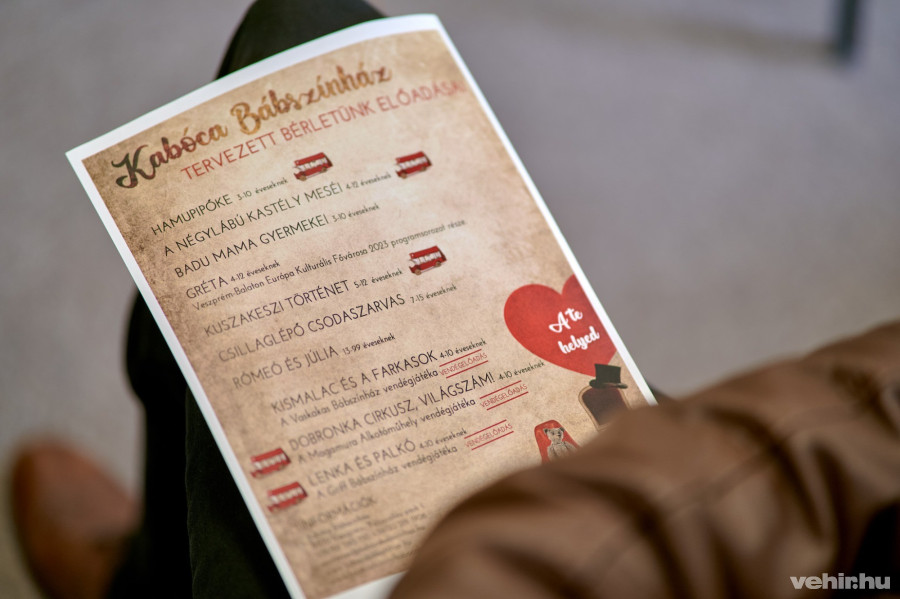 Kabóca Bábszínház
TERVEZETT BÉRLETÜNK ELŐADÁSAI
HAMUPIPŐKE 3-10 éveseknek
A NÉGYLÁBÚ KASTÉLY MESÉI 4-12 éveseknek
BADU MAMA GYERMEKEI 3-10 éveseknek
GRÉTA 4-12 éveseknek
Veszprém-Balaton Európa Kulturális Fővárosa 2023 programsorozat része
KUSZAKESZI TÖRTÉNET 5-12 éveseknek
CSILLAGLÉPŐ CSODASZARVAS 7-15 éveseknek
RÓMEÓ ÉS JÚLIA 13-99 éveseknek
A te
helyed
KISMALAC ÉS A FARKASOK 4-10 éveseknek
A Vaskakas Bábszínház vendégjátéka VENDÉGELŐADÁS
DOBRONKA CIRKUSZ, VILÁGSZÁM! 4-10 éveseknek
A Magamura Alkotóműhely vendégjátéka VENDÉGELŐADÁS
LENKA ÉS PALKÓ 4-10 éveseknek
A Griff Bábszínház vendégjátéka VENDÉGELŐADÁS
INFORMÁCIÓK
vehir.hu